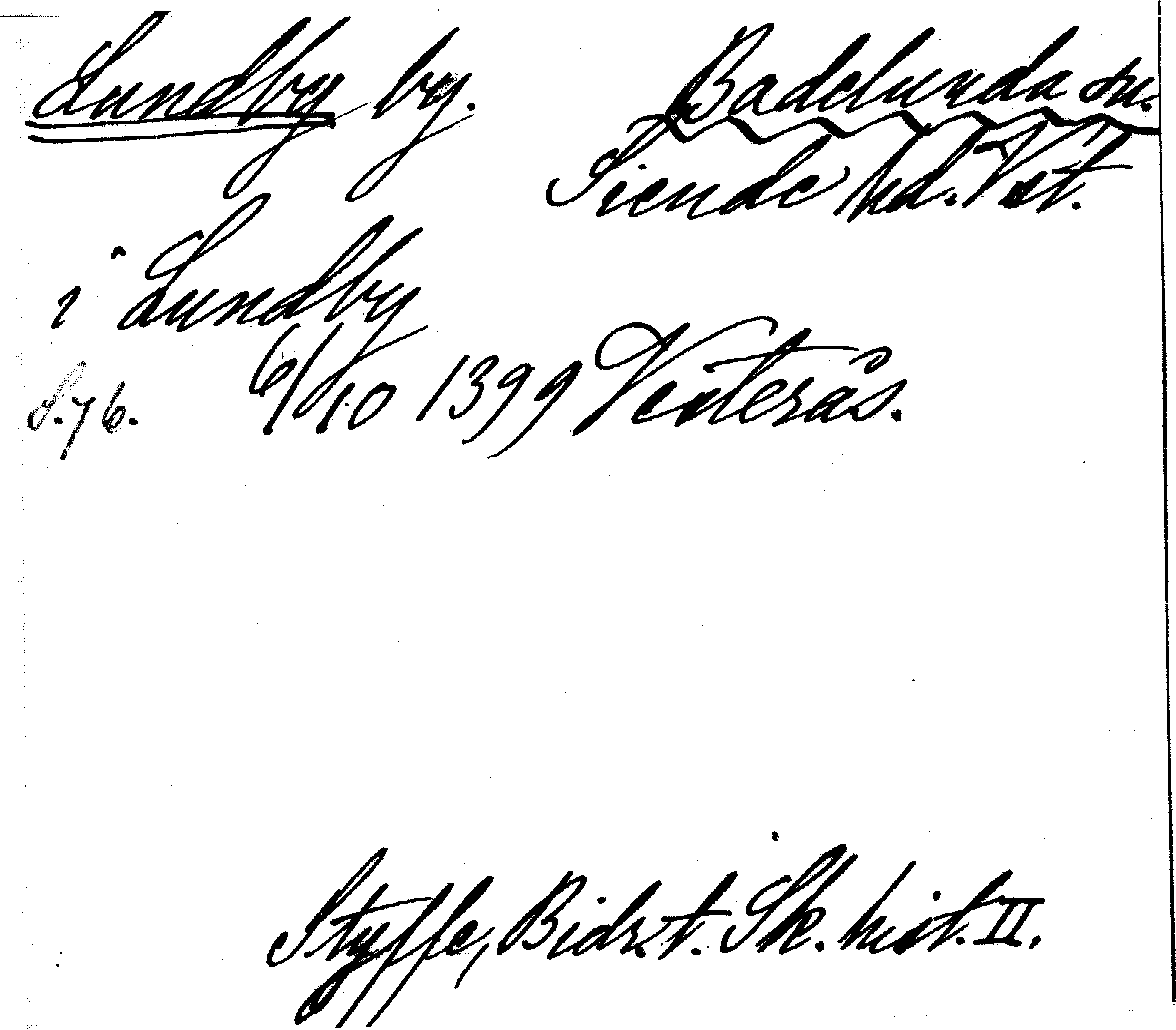 Lundby by. Badelunda sn.
Siende hd. Vst.
i Lundby
S. 76. 6/10 1399 Västerås.
Styffe, Bidr. t. Sk. hist. II.